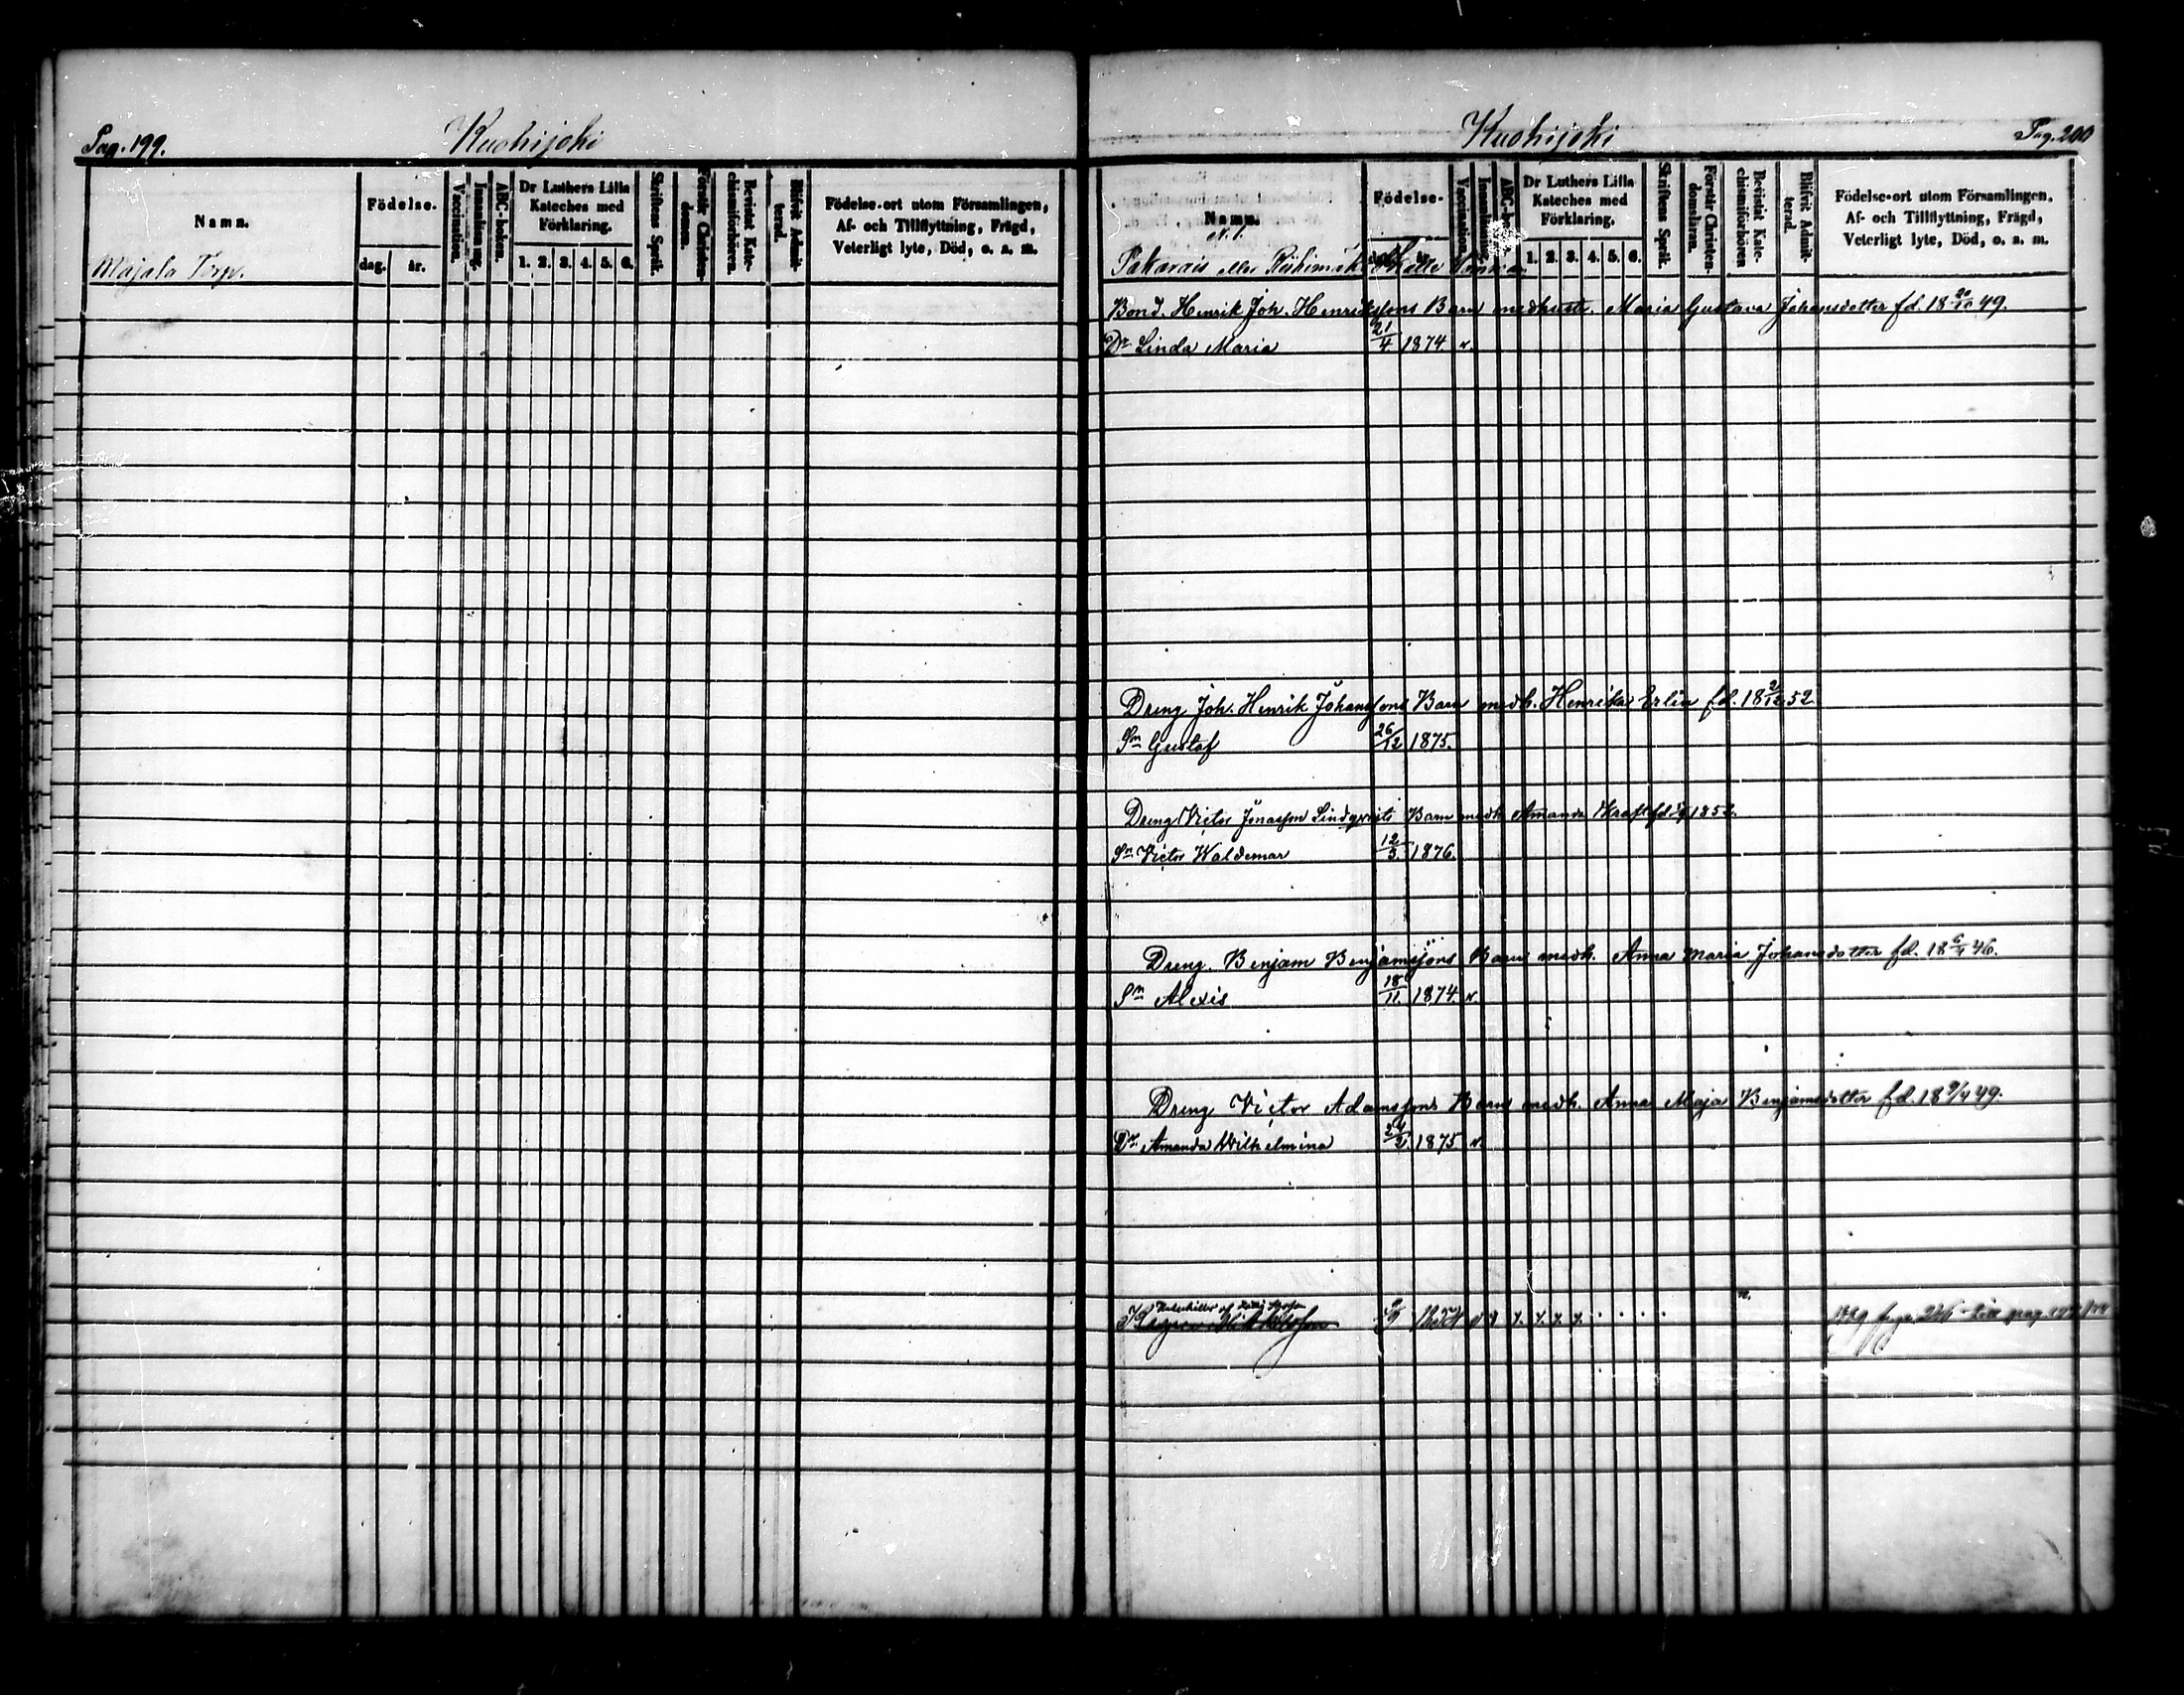 Pag. 199.
Kuohijoki
Namn.
Födelse.
dag.
år.
Vaccination.
Innanläsning.
ABC-boken.
Dr Luthers Lilla
Kateches med
Förklaring.
1. 2. 3. 4. 5. 6.
Skriftens Språk.
Förstår Christendomen.
Bevistat Katechismiförhören.
Blifvit Admitterad.
Födelse-ort utom Församlingen,
Af- och Tillflyttning, Frägd,
Veterligt lyte, Död, o. s. m.
Majala Torp.
Kuohijoki
Pag. 200
Namn.
N. 1.
Födelse-
Vaccination.
ABC-boken.
Dr Luthers Lilla
Kateches med
Förklaring.
1. 2. 3. 4. 5. 6.
Skriftens Språk.
Förstår Christendomsläran.
Bevistat Katechismiförhören
Blifvit Admitterad.
Födelse-ort utom Församlingen,
Af- och Tillflyttning, Frägd,
Veterligt lyte, Död, o. s. m.
eller
Bond. Henrik Joh. Henrikssons Barn med hustr. Maria Gustava Johansdotter fd. 18 20/10 49.
Dr Linda Maria 21/4 1874 v.
Dreng Joh. Henrik Johanssons Barn med h. Henrika Erlin fd. 18 2/12 52
Sn Gustaf 26/12 1875.
Dreng Victor Jonasson Lindqvists Barn med h. Amanda Kraft fd. 1852.
Sn Victor Waldemar 12/3 1876.
Dreng. Benjam Benjamssons Barn med h. Anna Maria Johansdotter fd. 18 6/4 46.
Sn Alexis 18/11 1874 v.
Dreng Victor Adamssons Barn med h. Anna Maja Benjamsdotter fd. 18 9/4 49.
Dr Amanda Wilhelmina 24/2 1875 v.